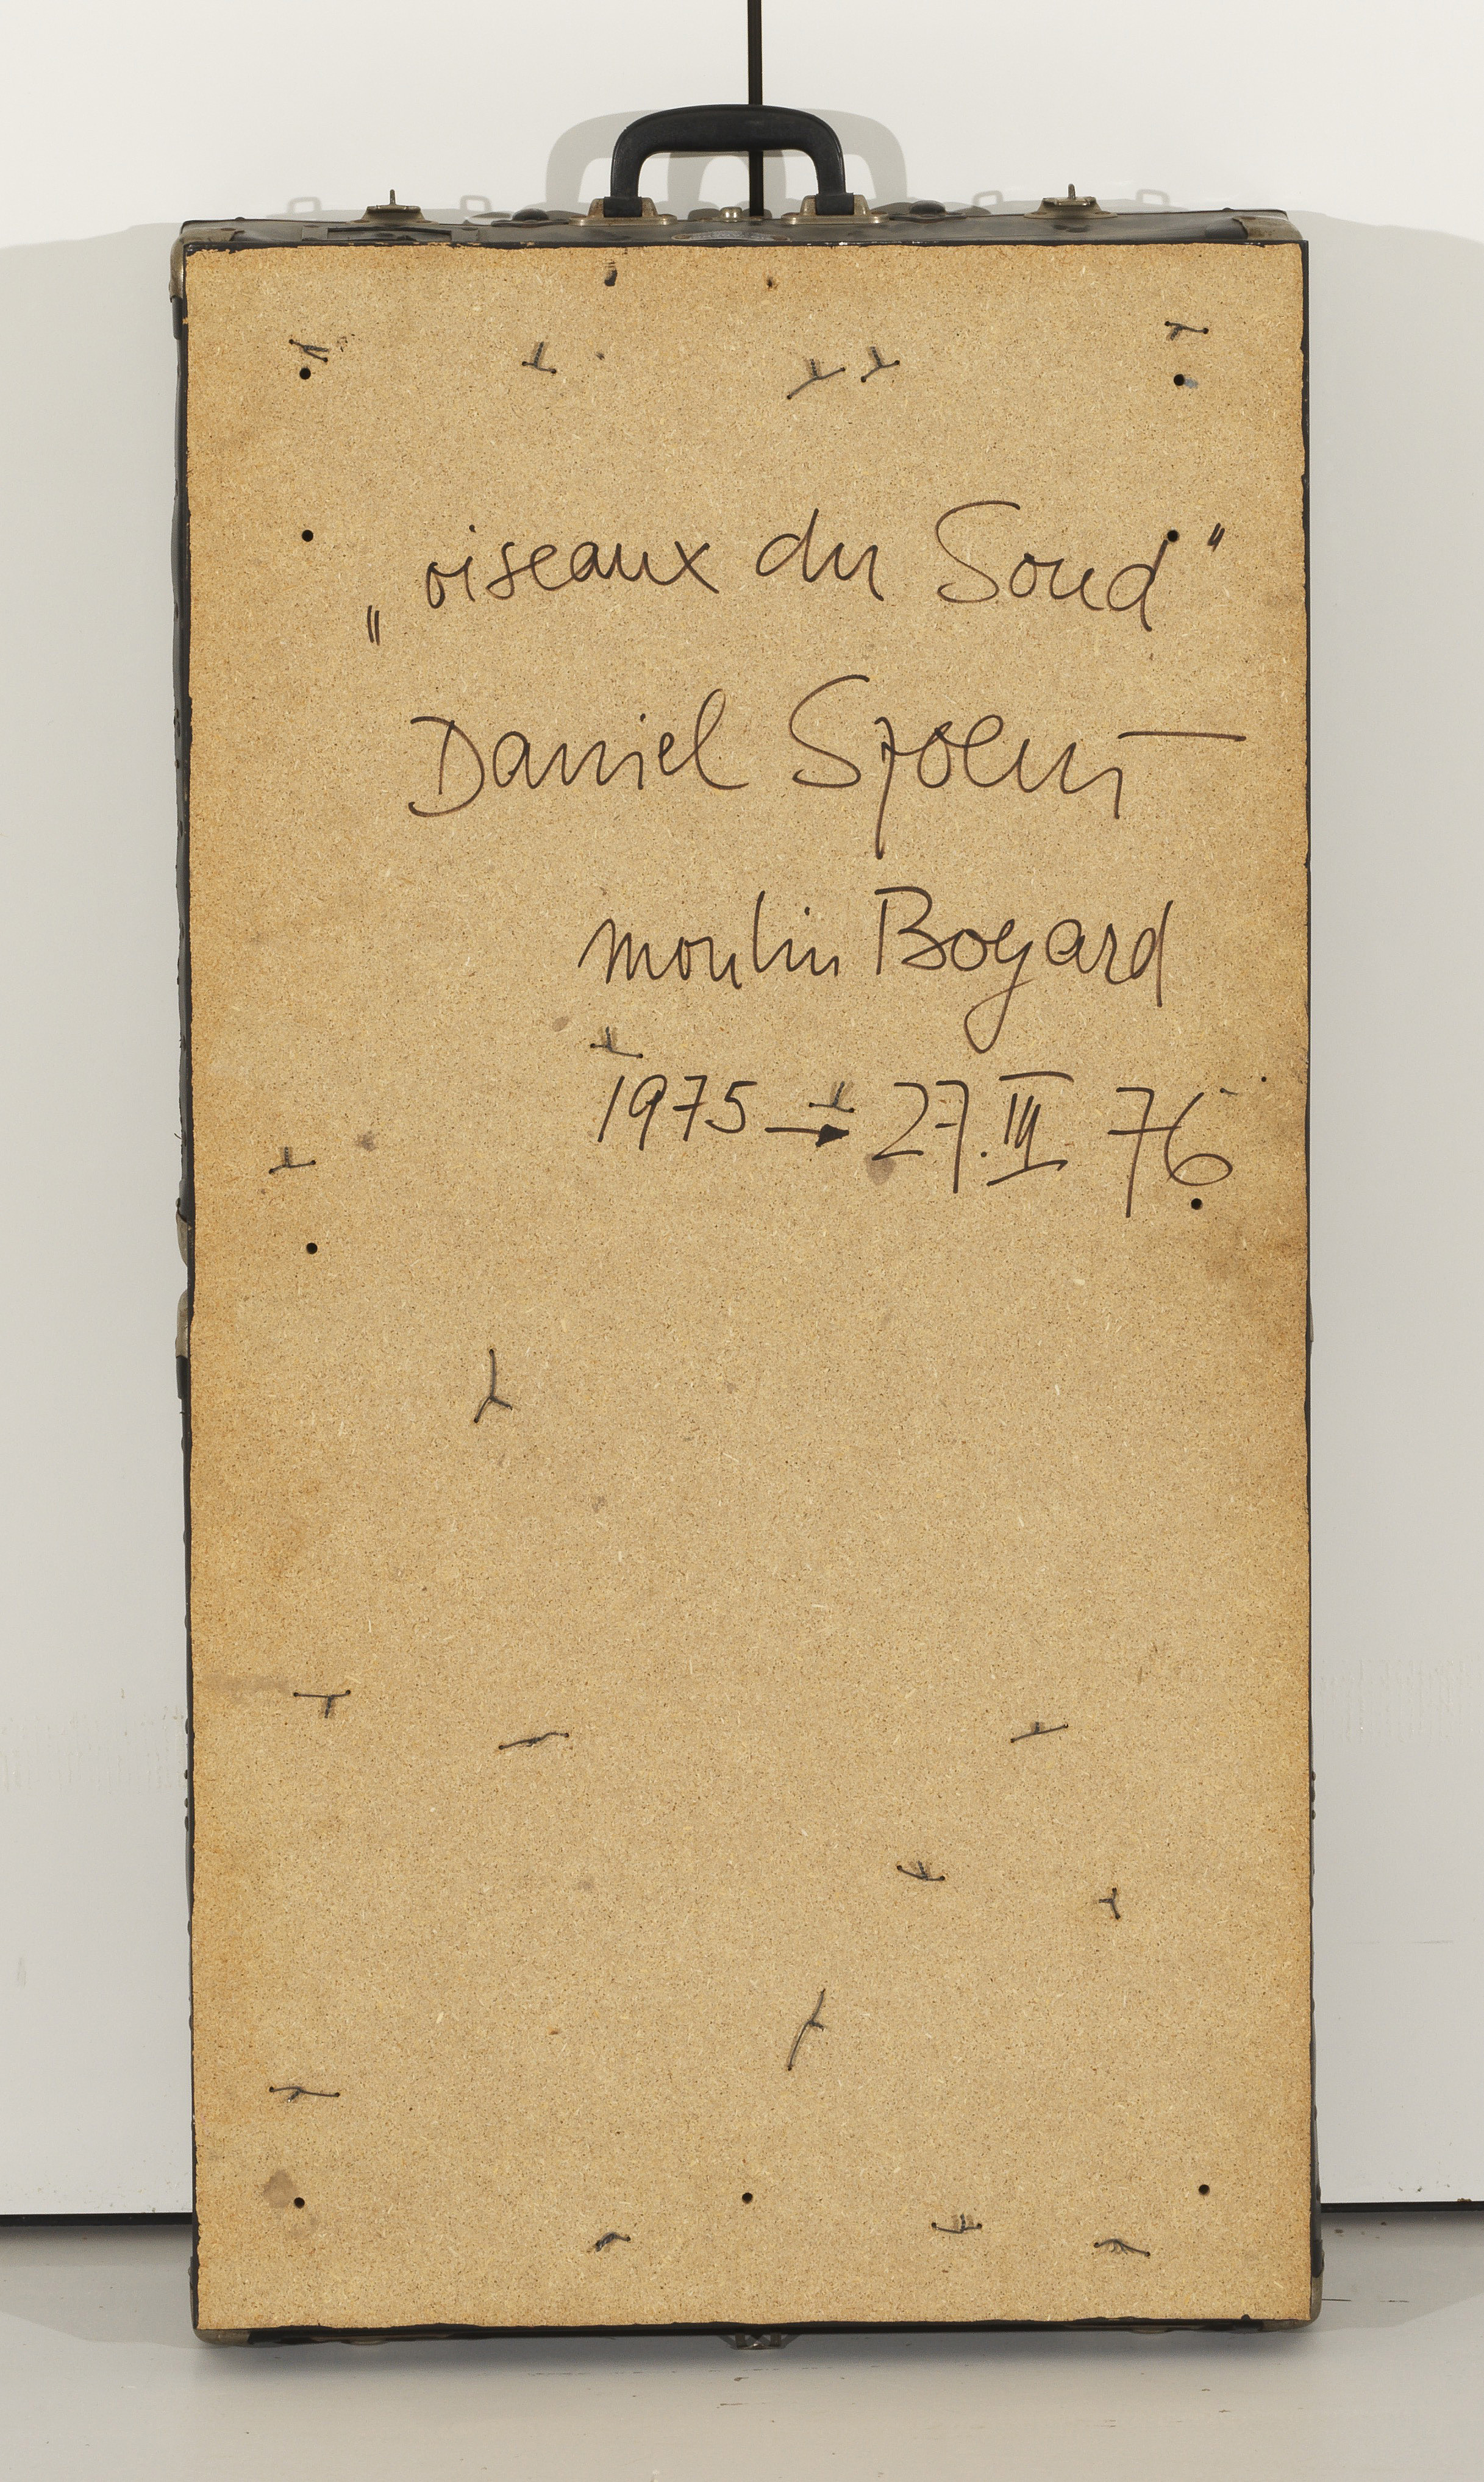 „oiseaux du Soud"
Daniel Spoerri
moulin Boyard
1975 → 27. III 76